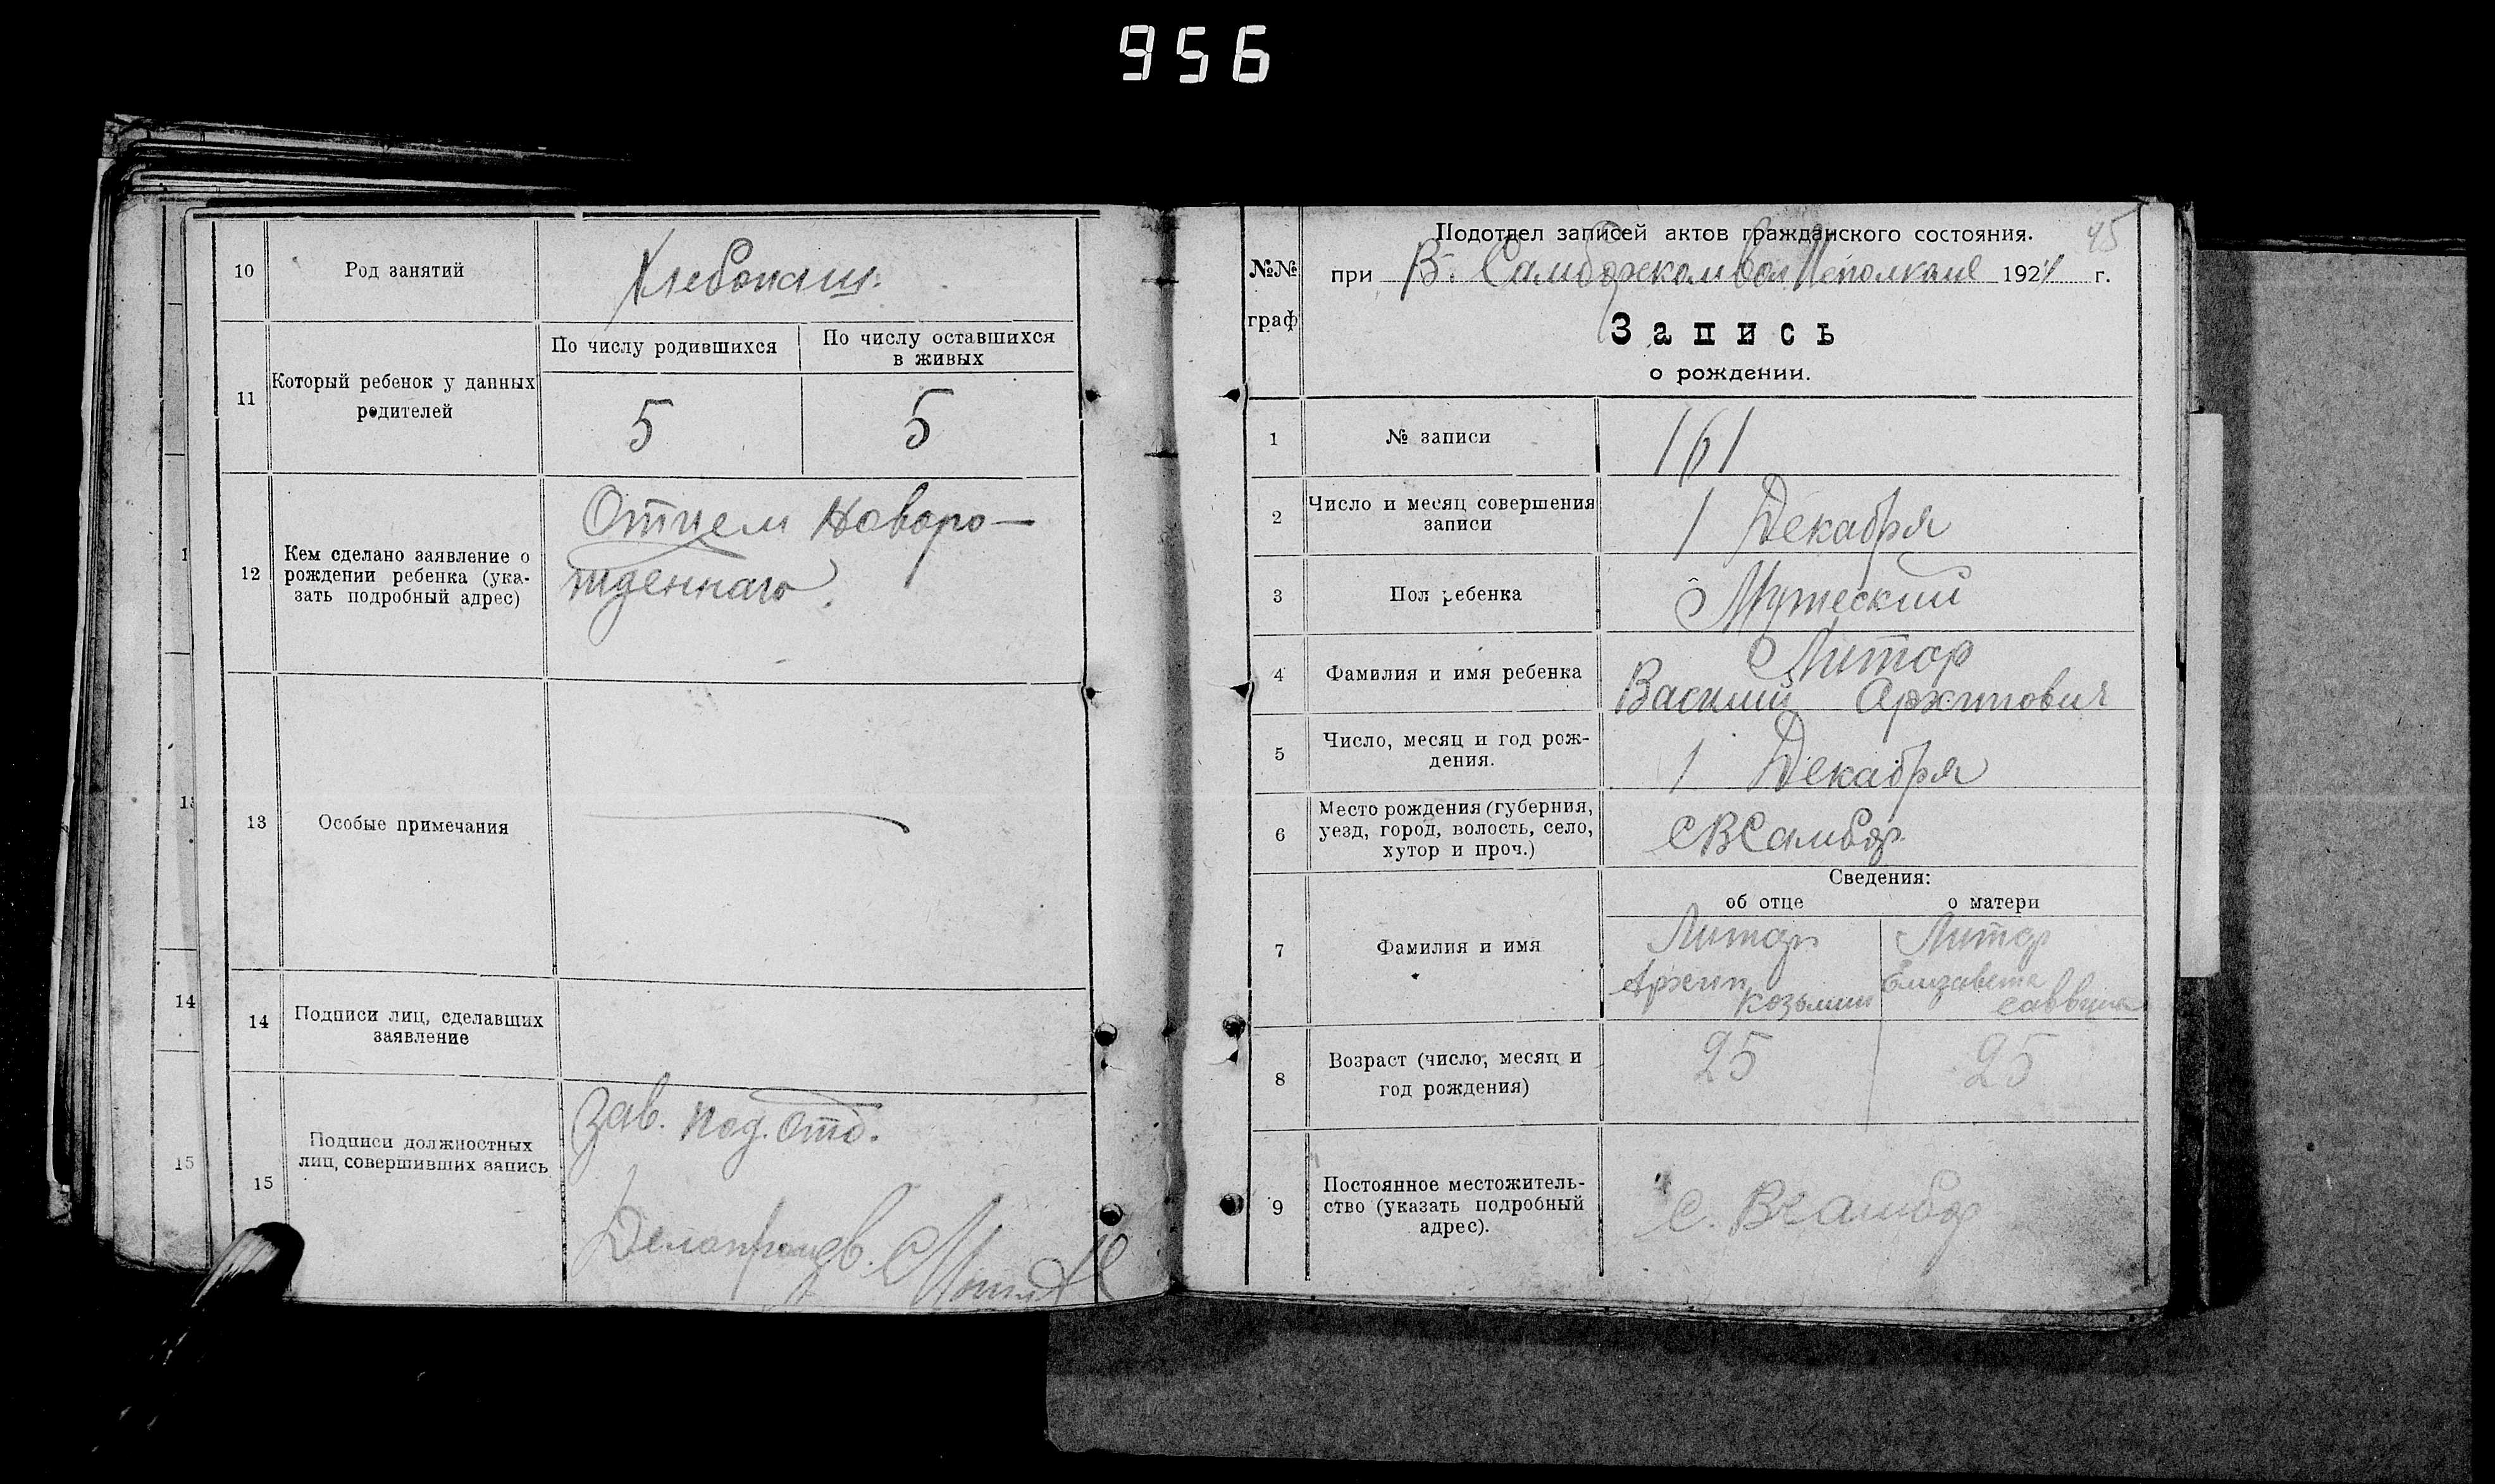 956
10
Род занятий
Хлебопаш.
11
Который ребенок у данных
родителей
По числу родившихся
По числу оставшихся
в живых
5
5
12
Кем сделано заявление о
рождении ребенка (ука-
зать подробный адрес)
Отцем новоро-
жденнаго
13
Особые примечания
14
Подписи лиц, сделавших
заявление
15
Подписи должностных
лиц, совершивших запись
Зав. под. отд.
Делопроизв.
1
14
15
№№
граф
Подотдел записей актов гражданского состояния.
95
при В. Самборском Вол Исполкоме 1921 г.
Запись
о рождении.
1
№ записи
161
2
Число и месяц совершения
записи
1 Декабря
3
Пол ребенка
Мужеский
4
Фамилия и имя ребенка
Литор
Василий Архипович
5
Число, месяц и год рож-
дения.
1 Декабря
6
Место рождения (губерния,
уезд, город, волость, село,
хутор и проч.)
С В Самбор
Сведения:
об отце
о матери
7
Фамилия и имя
Литор
Архип
Козьмин
Литор
Елизавета
Саввина
8
Возраст (число, месяц и
год рождения)
25
25
9
Постоянное местожитель-
ство (указать подробный
адрес).
С. В Самбор